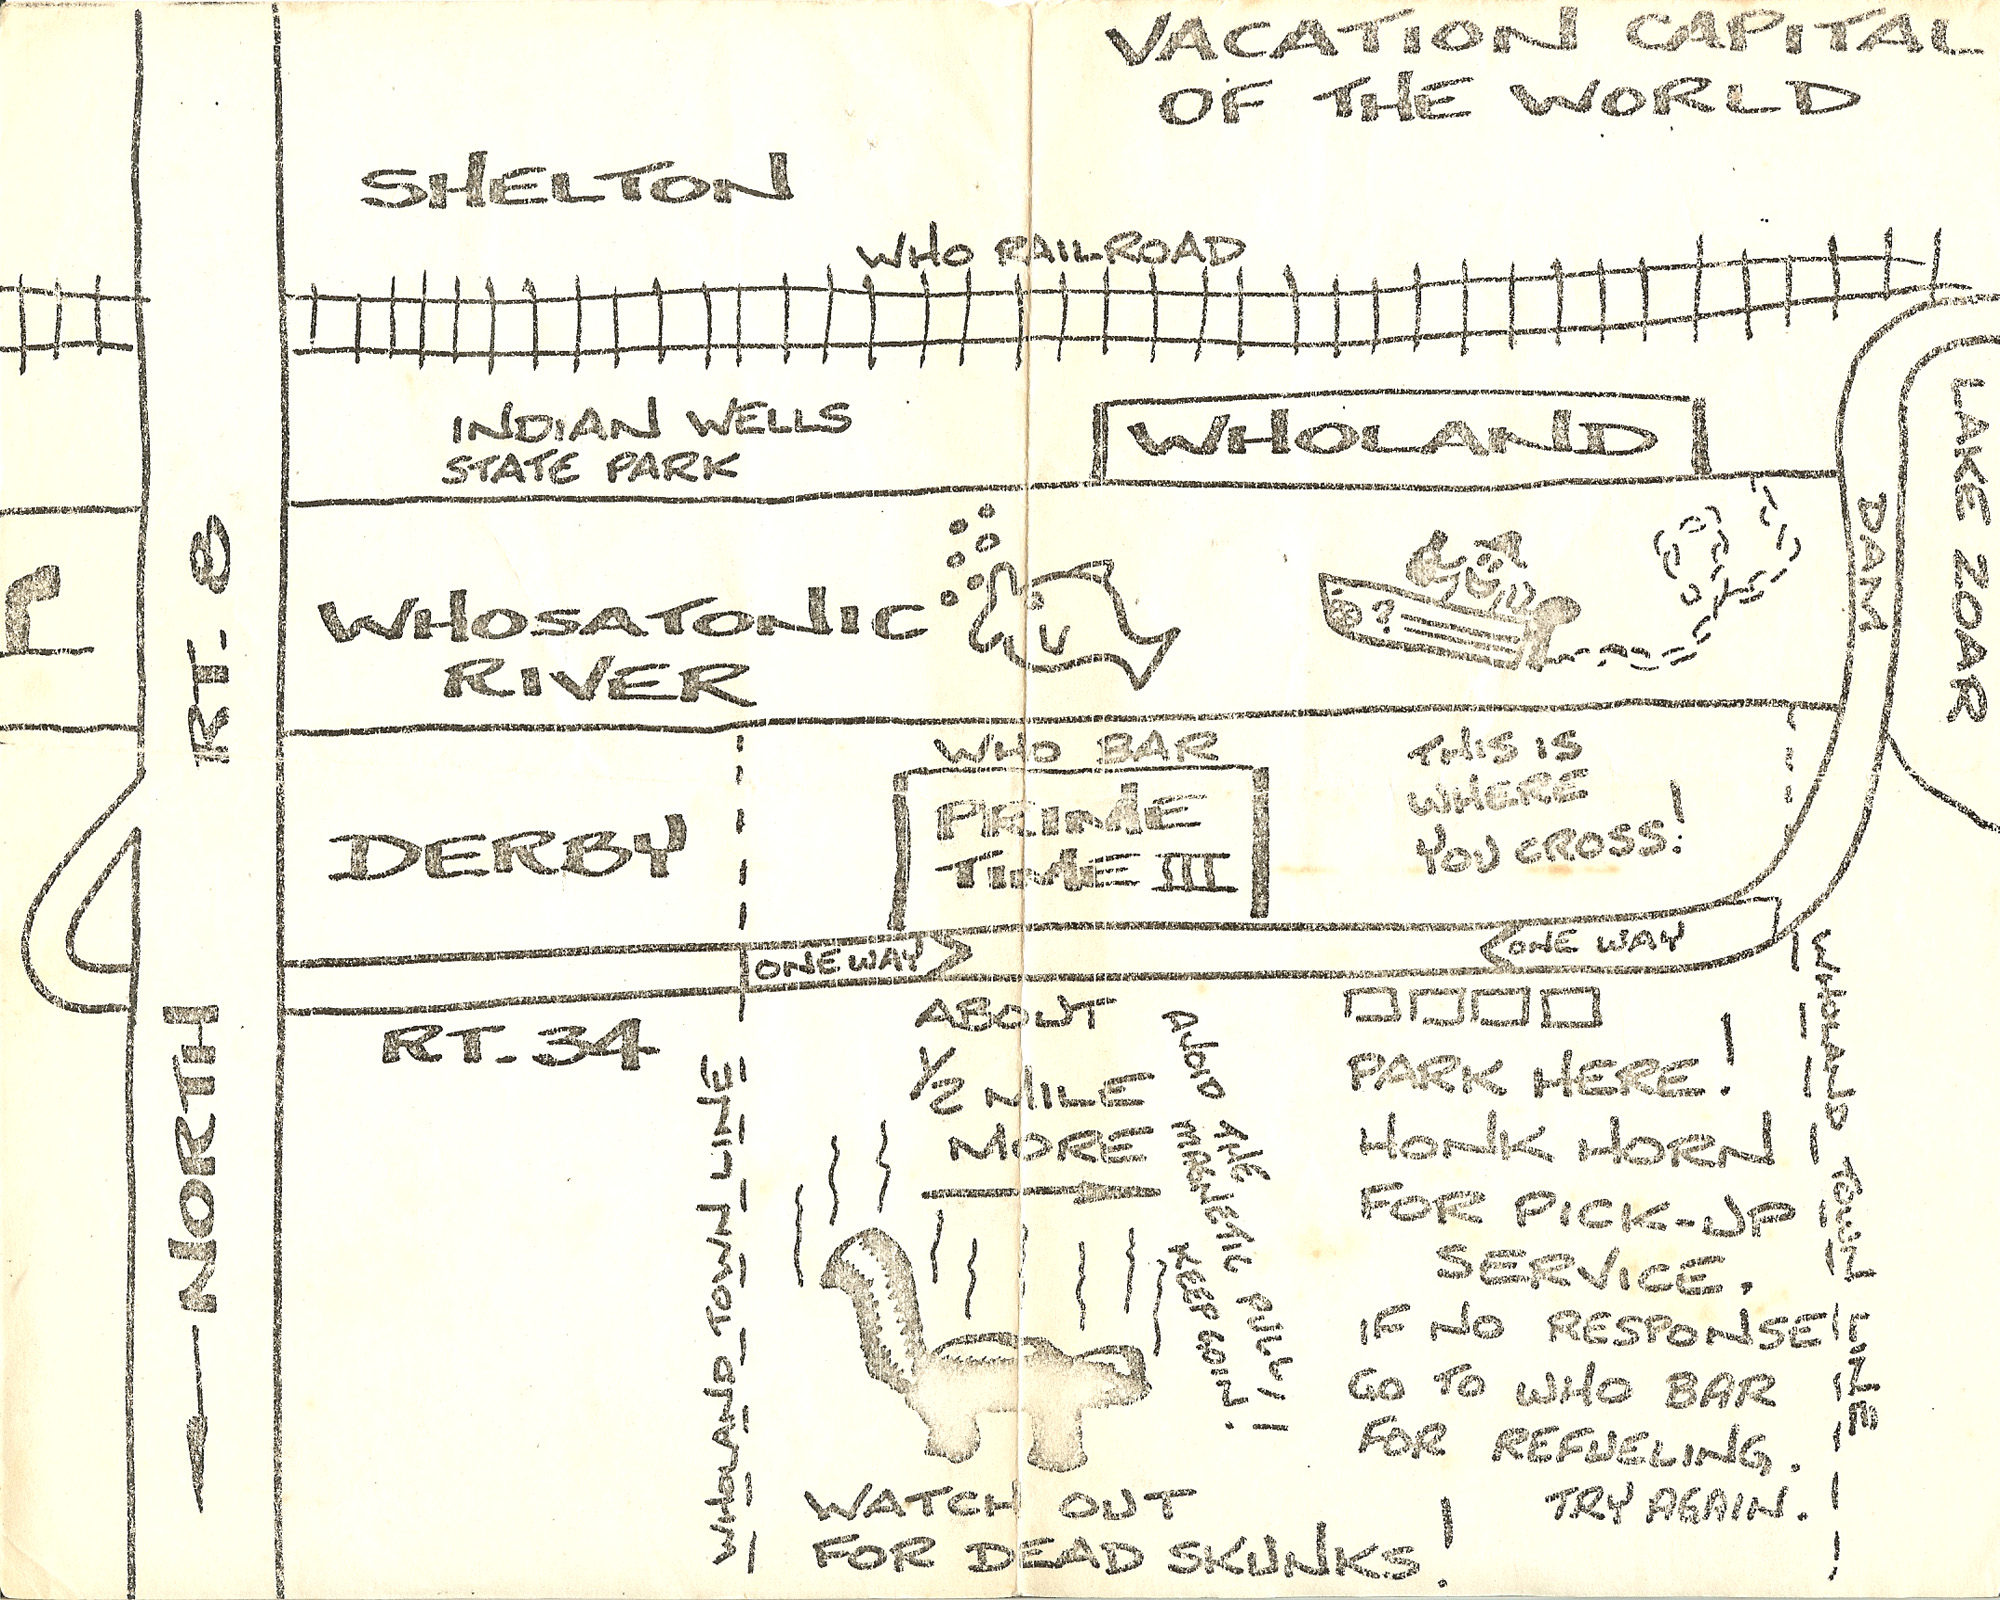 VACATION CAPITAL
OF THE WORLD
SHELTON
WHO RAILROAD
INDIAN WELLS
STATE PARK
WHOLAND
LAKE ZOAR
DAM
RT. 8
WHOSATONIC
RIVER
?
V
WHO BAR
PRIME
TIME III
THIS IS
WHERE
YOU CROSS!
DERBY
ONE WAY
ONE WAY
RT. 34
NORTH
WHOLAND TOWN LINE
ABOUT
1/2 MILE
MORE
AVOID THE
MAGNETIC PULL!
KEEP GOIN'!
PARK HERE!
HONK HORN
FOR PICK-UP
SERVICE.
IF NO RESPONSE
GO TO WHO BAR
FOR REFUELING.
TRY AGAIN.
WHOLAND TOWN LINE
WATCH OUT
FOR DEAD SKUNKS!